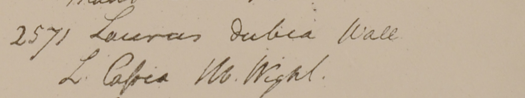 2571 Laurus dubia Wall
L. Cassia Hb. Wight.